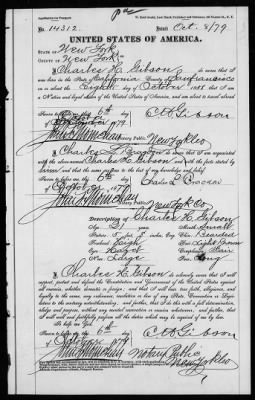 No. 14312
Issued Oct. 8/79
UNITED STATES OF AMERICA.
STATE OF New York
COUNTY OF New York
I, Charles H. Gibson do swear that I was
born in the State of California County San Francisco
on the Eighth day of October 1858 that I am
a Native and loyal Citizen of the United States of America, and am about to travel abroad
Sworn to before me, this 6th
day of October 1879.
C H Gibson
Notary Public New York Co
I, Charles
with the above-named Charles H. Gibson, and with the facts stated by
are true to the best of my knowledge and belief.
Sworn to before me, this 6th
day of October 1879
Notary Public New York Co
Description of Charles H. Gibson
Age, 21 years
Mouth, Small
Chin, Bearded
Forehead, High
Hair, Light Brown
Eyes, Hazel
Complexion, Fair
Nose, Large
Face, Long
I, Charles H. Gibson do solemnly swear that I will
support, protect and defend the Constitution and Government of the United States against
all enemies, whether domestic or foreign; and that I will bear true faith, allegiance, and
loyalty to the same, any ordinance, resolution or law of any State, Convention or Legis-
lature to the contrary notwithstanding; and further, that I do this with a full determination,
pledge and purpose, without any mental reservation or evasion whatsoever; and further, that
I will well and faithfully perform all the duties which may be required of me by law. So
help me God.
Sworn to before me, this 6th
day of October 1879
C H Gibson
Notary Public
New York Co